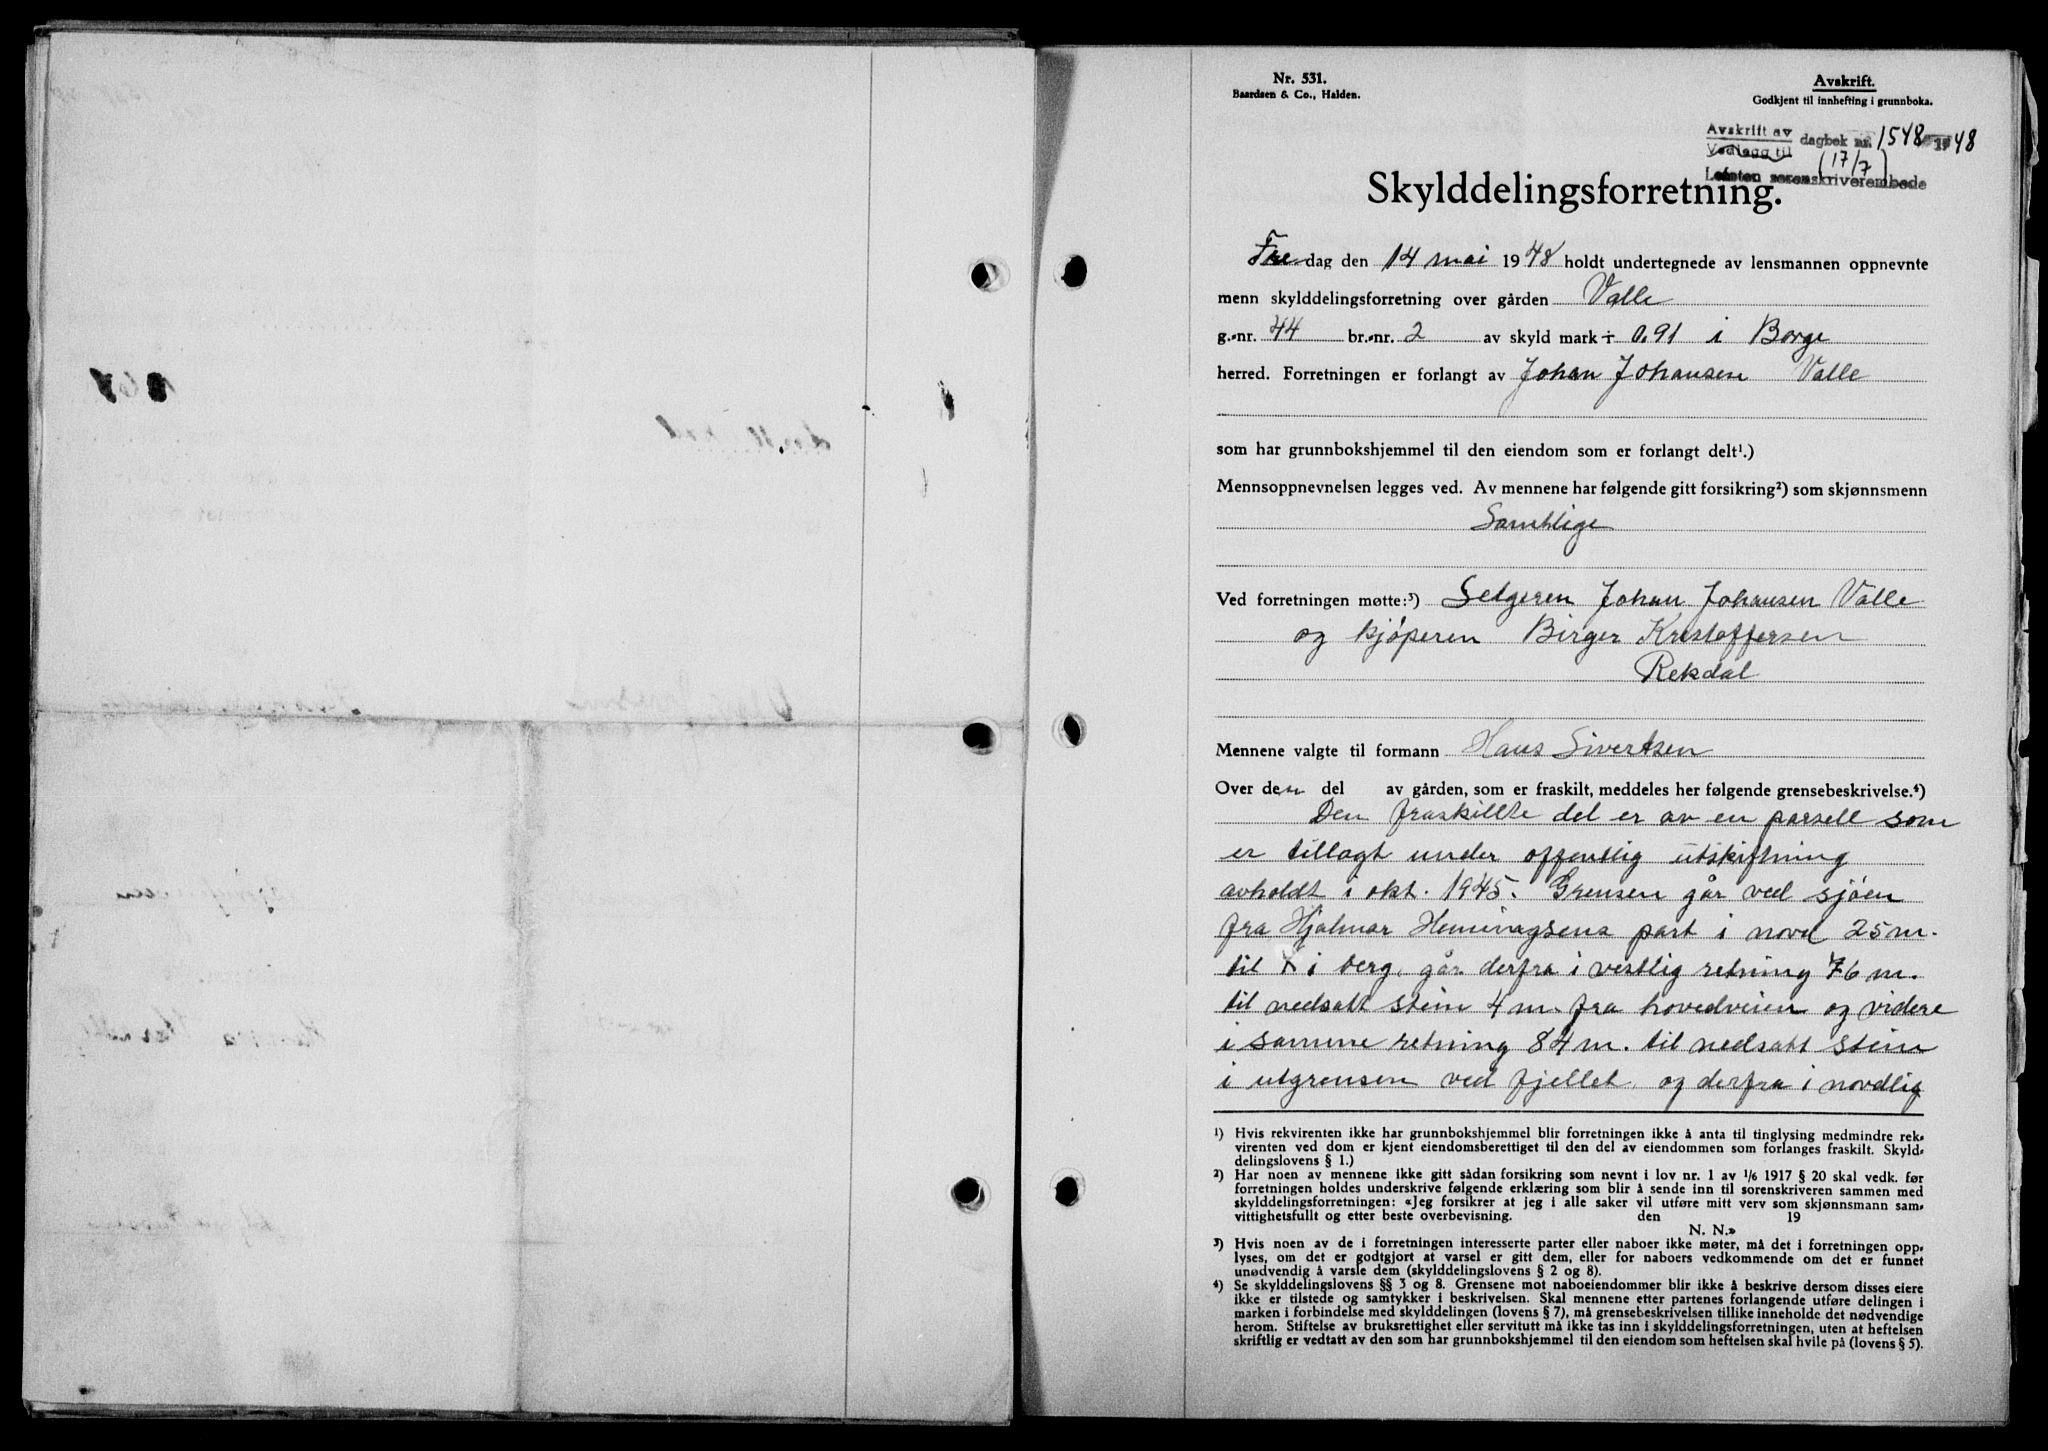 Nr. 531.
Baardsen & Co., Halden.
Avskrift.
Godkjent til innhefting i grunnboka.
Avskrift av
Vedlegg til
dagbok nr. 1548 1948
(17/7)
Lofoten sorenskriverembede
Skylddelingsforretning.
Fredag den 14 mai 1948 holdt undertegnede av lensmannen oppnevnte
menn skylddelingsforretning over gården Valle
g.-nr. 44 br.-nr. 2 av skyld mark ÷ 0.91 i Borge
herred. Forretningen er forlangt av Johan Johansen Valle
som har grunnbokshjemmel til den eiendom som er forlangt delt¹.)
Mennsoppnevnelsen legges ved. Av mennene har følgende gitt forsikring²) som skjønnsmenn
Samtlige
Ved forretningen møtte:³) Selgeren Johan Johansen Valle
og kjøperen Birger Kristoffersen
Rekdal
Mennene valgte til formann Hans Sivertsen
Over den del av gården, som er fraskilt, meddeles her følgende grensebeskrivelse.⁴)
Den fraskillte del er av en parsell som
er tillagt under offentlig utskiftning
avholdt i okt. 1945. Grensen går ved sjøen
fra Hjalmar Henningsens part i nord 25 m.
til X i berg, går derfra i vestlig retning 76 m.
til nedsatt stein 4 m. fra hovedveien og videre
i samme retning 84 m. til nedsatt stein
i utgrensen ved fjellet og derfra i nordlig
¹) Hvis rekvirenten ikke har grunnbokshjemmel blir forretningen ikke å anta til tinglysing medmindre rek-
virenten ved dom er kjent eiendomsberettiget til den del av eiendommen som forlanges fraskilt. Skyld-
delingslovens § 1.)
²) Har noen av mennene ikke gitt sådan forsikring som nevnt i lov nr. 1 av 1/6 1917 § 20 skal vedk. før
forretningen holdes underskrive følgende erklæring som blir å sende inn til sorenskriveren sammen med
skylddelingsforretningen: «Jeg forsikrer at jeg i alle saker vil utføre mitt verv som skjønnsmann sam-
vittighetsfullt og etter beste overbevisning. den 19
N. N.»
³) Hvis noen av de i forretningen interesserte parter eller naboer ikke møter, må det i forretningen opp-
lyses, om det er godtgjort at varsel er gitt dem, eller for naboers vedkommende om det er funnet
unødvendig å varsle dem (skylddelingslovens § 2 og 8).
⁴) Se skylddelingslovens §§ 3 og 8. Grensene mot naboeiendommer blir ikke å beskrive dersom disses eiere
ikke er tilstede og samtykker i beskrivelsen. Skal mennene etter partenes forlangende utføre delingen i
marken i forbindelse med skylddelingen (lovens § 7), må grensebeskrivelsen tillike inneholde det nødvendige
herom. Stiftelse av bruksrettighet eller servitutt må ikke tas inn i skylddelingsforretningen, uten at heftelsen
skriftlig er vedtatt av den som har grunnbokshjemmel til den eiendom som heftelsen skal hvile på (lovens § 5).